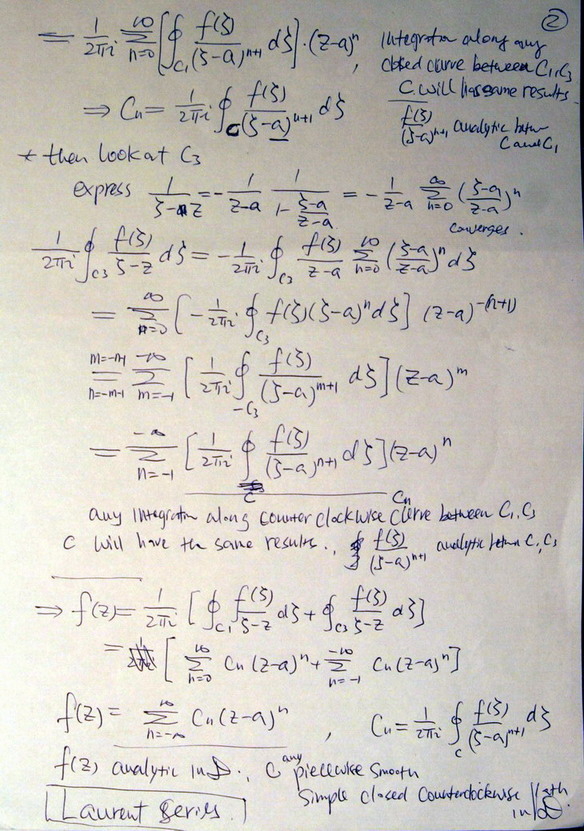 ②
= 1/2πi ∞Σn=0 [∮C₁ f(ξ)/(ξ-a)ⁿ⁺¹ dξ]·(z-a)ⁿ, Integration along any
closed curve between C₁, C₃
⇒ Cn = 1/2πi ∮C f(ξ)/(ξ-a)ⁿ⁺¹ dξ C will has same results
f(ξ)/(ξ-a)ⁿ⁺¹ analytic betwn
C and C₁
* then look at C₃
express 1/(ξ-z) = - 1/(z-a) 1/(1-(ξ-a)/(z-a)) = - 1/(z-a) ∞Σn=0 ((ξ-a)/(z-a))ⁿ
converges.
1/2πi ∮C₃ f(ξ)/(ξ-z) dξ = - 1/2πi ∮C₃ f(ξ)/(z-a) ∞Σn=0 ((ξ-a)/(z-a))ⁿ dξ
= ∞Σn=0 [- 1/2πi ∮C₃ f(ξ)(ξ-a)ⁿ dξ] (z-a)^-(n+1)
m=-n-1 = n=-m-1 -∞Σm=-1 [1/2πi ∮-C₃ f(ξ)/(ξ-a)ᵐ⁺¹ dξ](z-a)ᵐ
= -∞Σn=-1 [1/2πi ∮C f(ξ)/(ξ-a)ⁿ⁺¹ dξ](z-a)ⁿ
Cn
any integration along counter clockwise curve between C₁, C₃
C will have the same results., f(ξ)/(ξ-a)ⁿ⁺¹ analytic betwn C₁, C₃
⇒ f(z) = 1/2πi [∮C₁ f(ξ)/(ξ-z) dξ + ∮C₃ f(ξ)/(ξ-z) dξ]
= [∞Σn=0 Cn(z-a)ⁿ + -∞Σn=-1 Cn(z-a)ⁿ]
f(z) = ∞Σn=-∞ Cn(z-a)ⁿ , Cn = 1/2πi ∮C f(ξ)/(ξ-a)ⁿ⁺¹ dξ
f(z) analytic in D., C any piecewise smooth
simple closed counterclockwise path
in D.
Laurent Series.